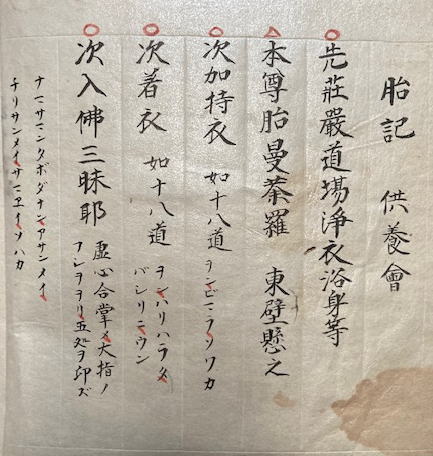 胎記 供養會
先莊嚴道場淨衣浴身等
本尊胎曼荼羅 東壁懸之
次加持衣 如十八道 ヲンビソラソワカ
次着衣 如十八道 ヲンバリハラタ
バシリニウン
次入佛三昧耶 虚心合掌メ大指ノ
フシヲヨリ五処ヲ印ズ
ナマサマンタボダナンアサンメイ
チリサンメイサマエイソハカ